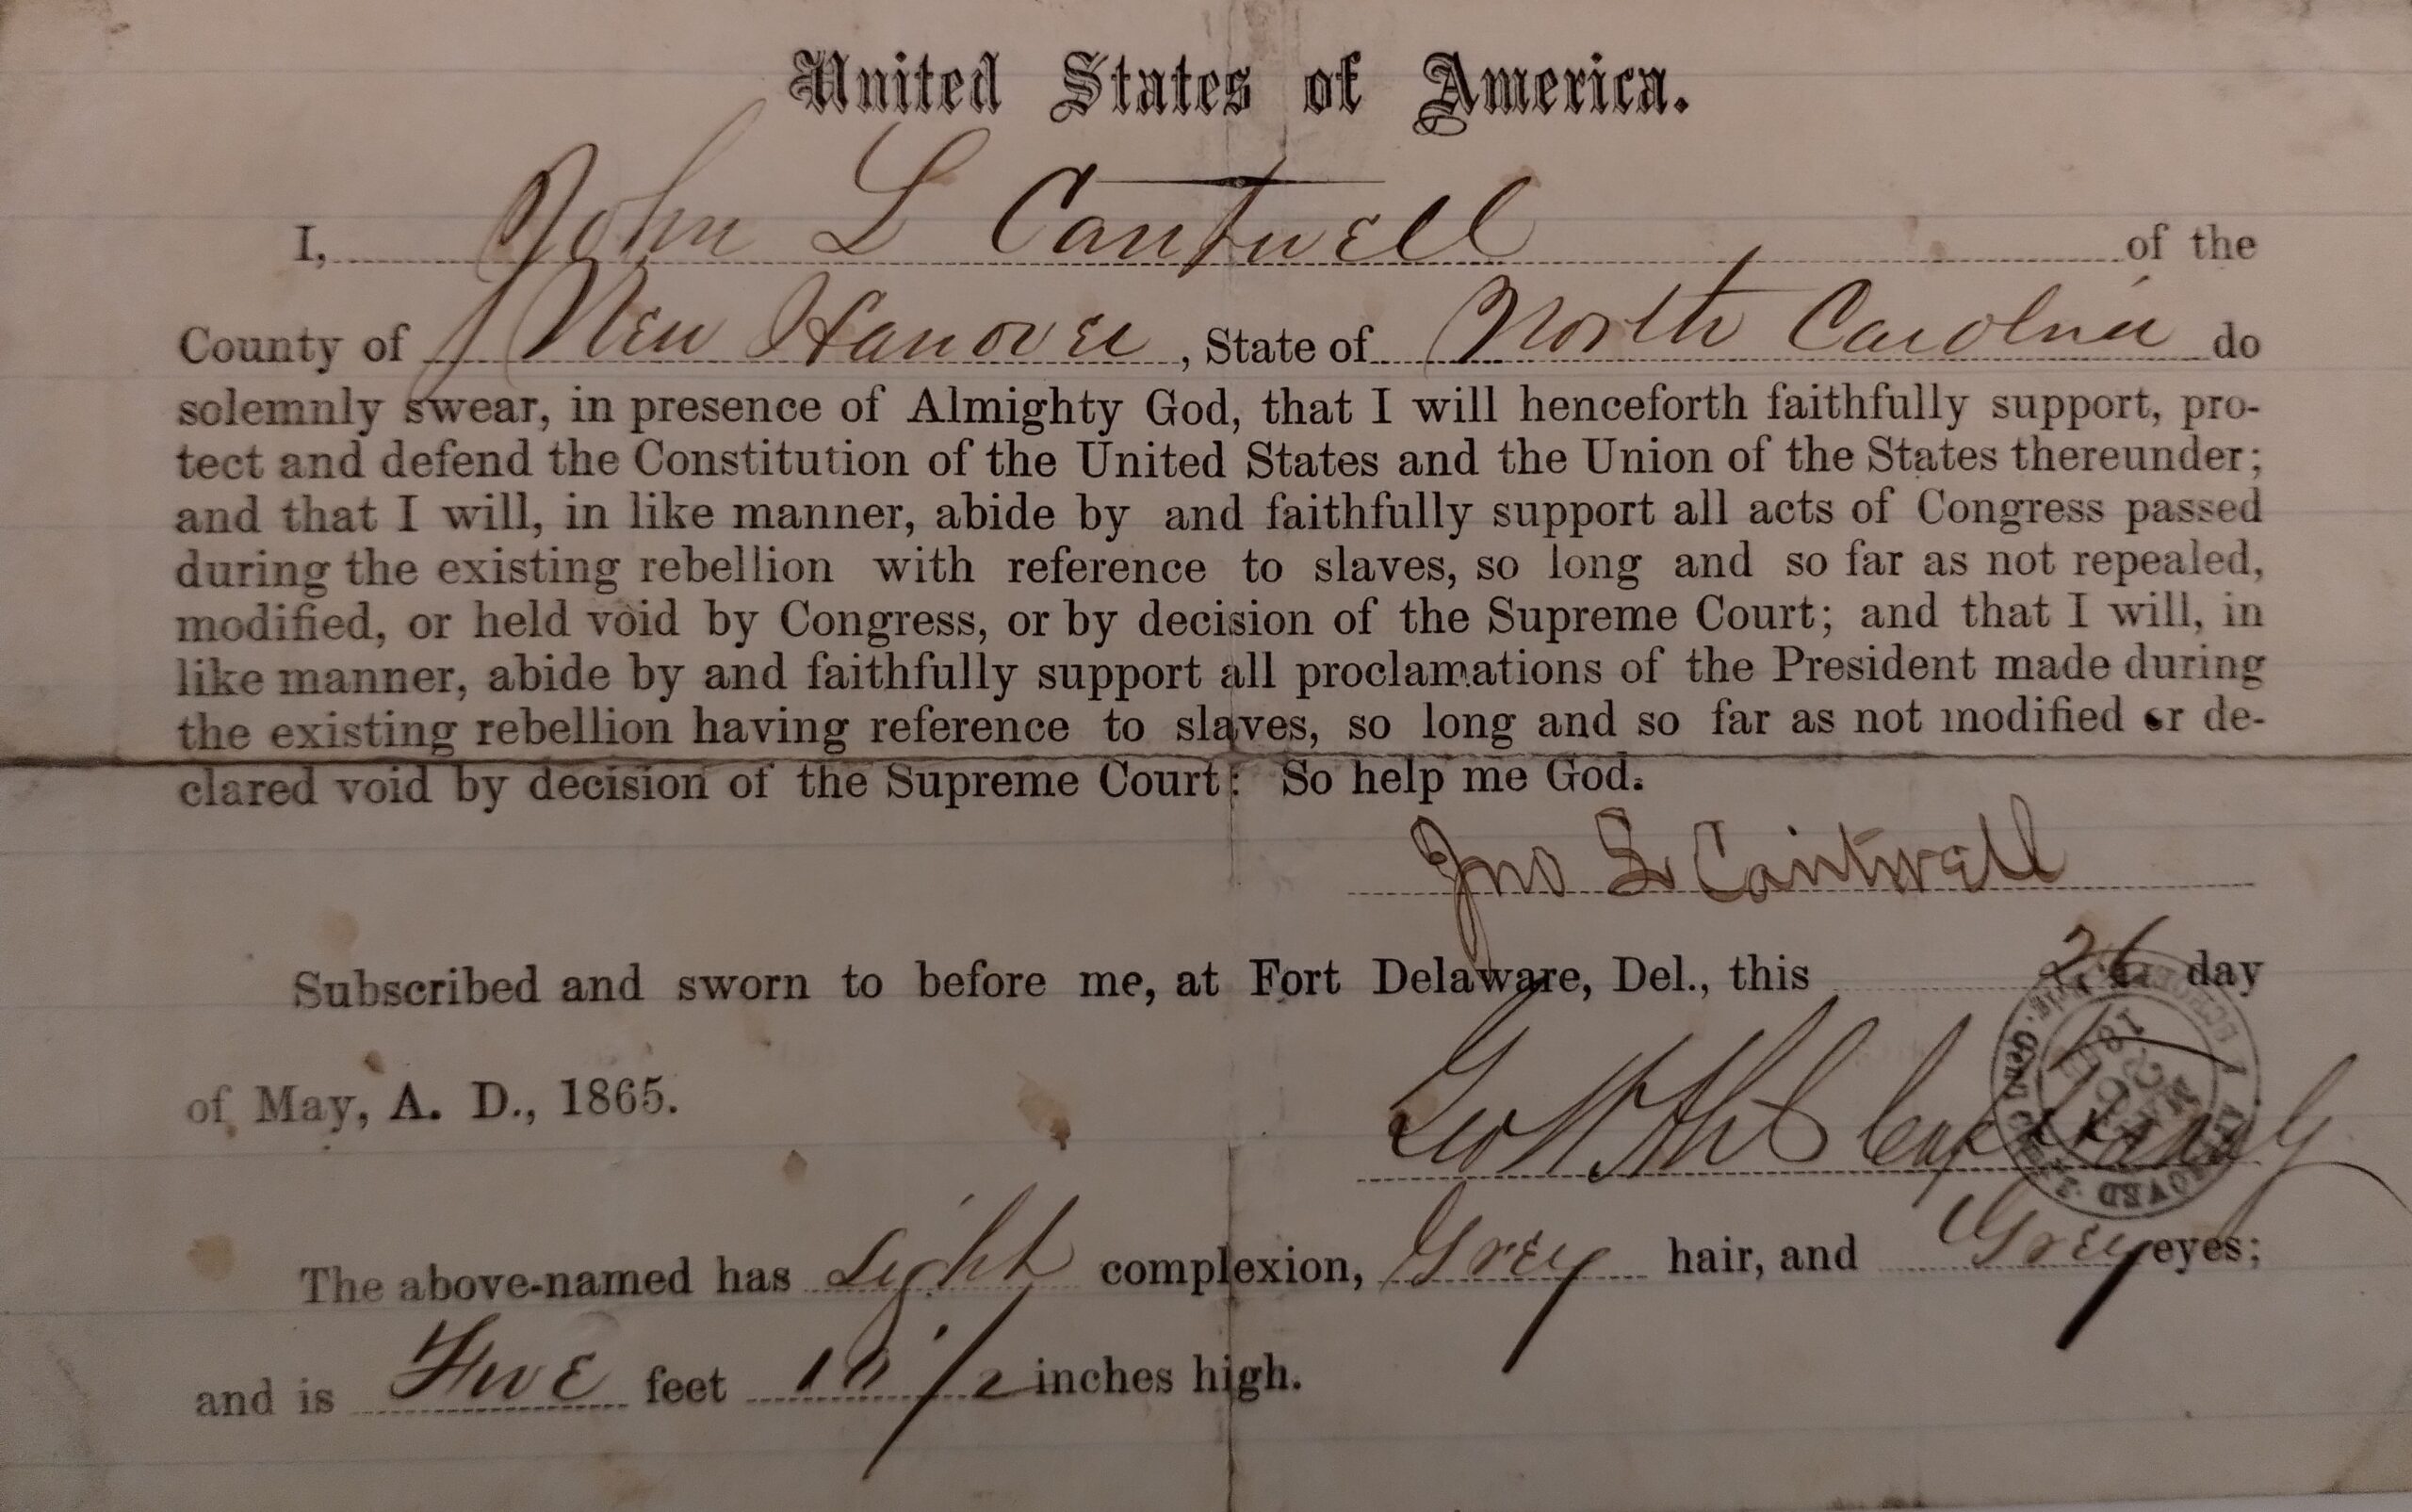 United States of America.
I, John L Cantwell of the
County of New Hanover, State of North Carolina do
solemnly swear, in presence of Almighty God, that I will henceforth faithfully support, pro-
tect and defend the Constitution of the United States and the Union of the States thereunder;
and that I will, in like manner, abide by and faithfully support all acts of Congress passed
during the existing rebellion with reference to slaves, so long and so far as not repealed,
modified, or held void by Congress, or by decision of the Supreme Court; and that I will, in
like manner, abide by and faithfully support all proclamations of the President made during
the existing rebellion having reference to slaves, so long and so far as not modified or de-
clared void by decision of the Supreme Court: So help me God.
Jno L Cantwell
Subscribed and sworn to before me, at Fort Delaware, Del., this 26 day
of May, A. D., 1865.
Geo
The above-named has Light complexion, Grey hair, and Grey eyes;
and is Five feet inches high.